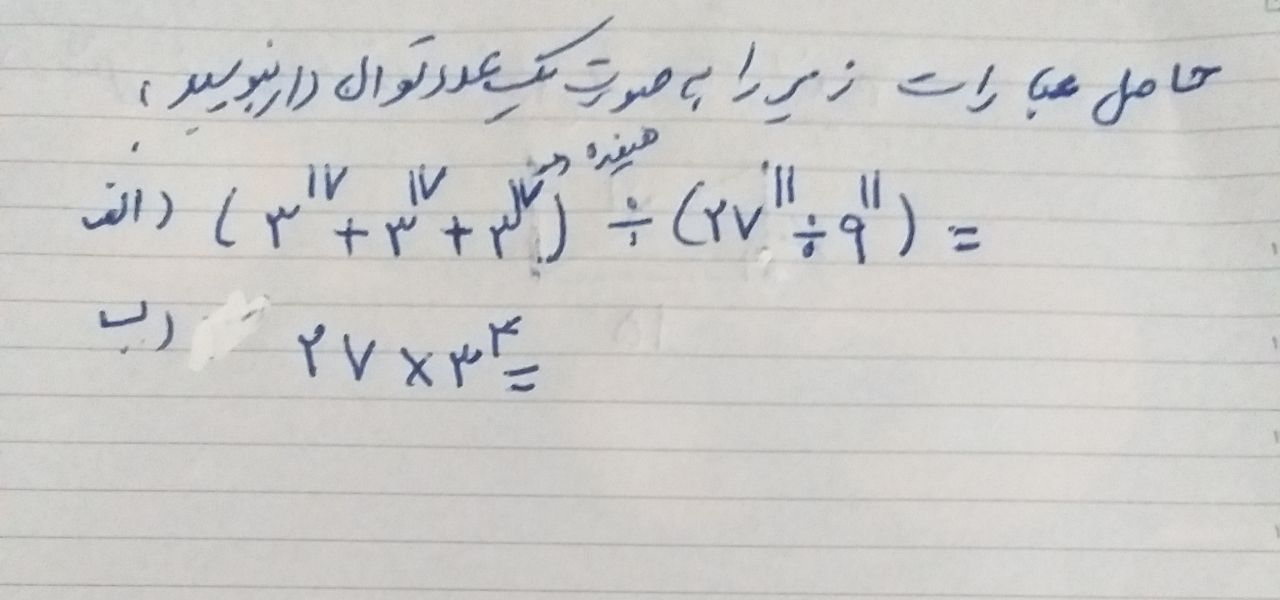 حاصل عبارات زیر را به صورت یک عدد توان دار بنویسید:
هیفده
الف) (۳^۱۷ + ۳^۱۷ + ۳^۱۷) ÷ (۲۷^۱۱ ÷ ۹^۱۱) =
ب) ۲۷ × ۳^۴ =